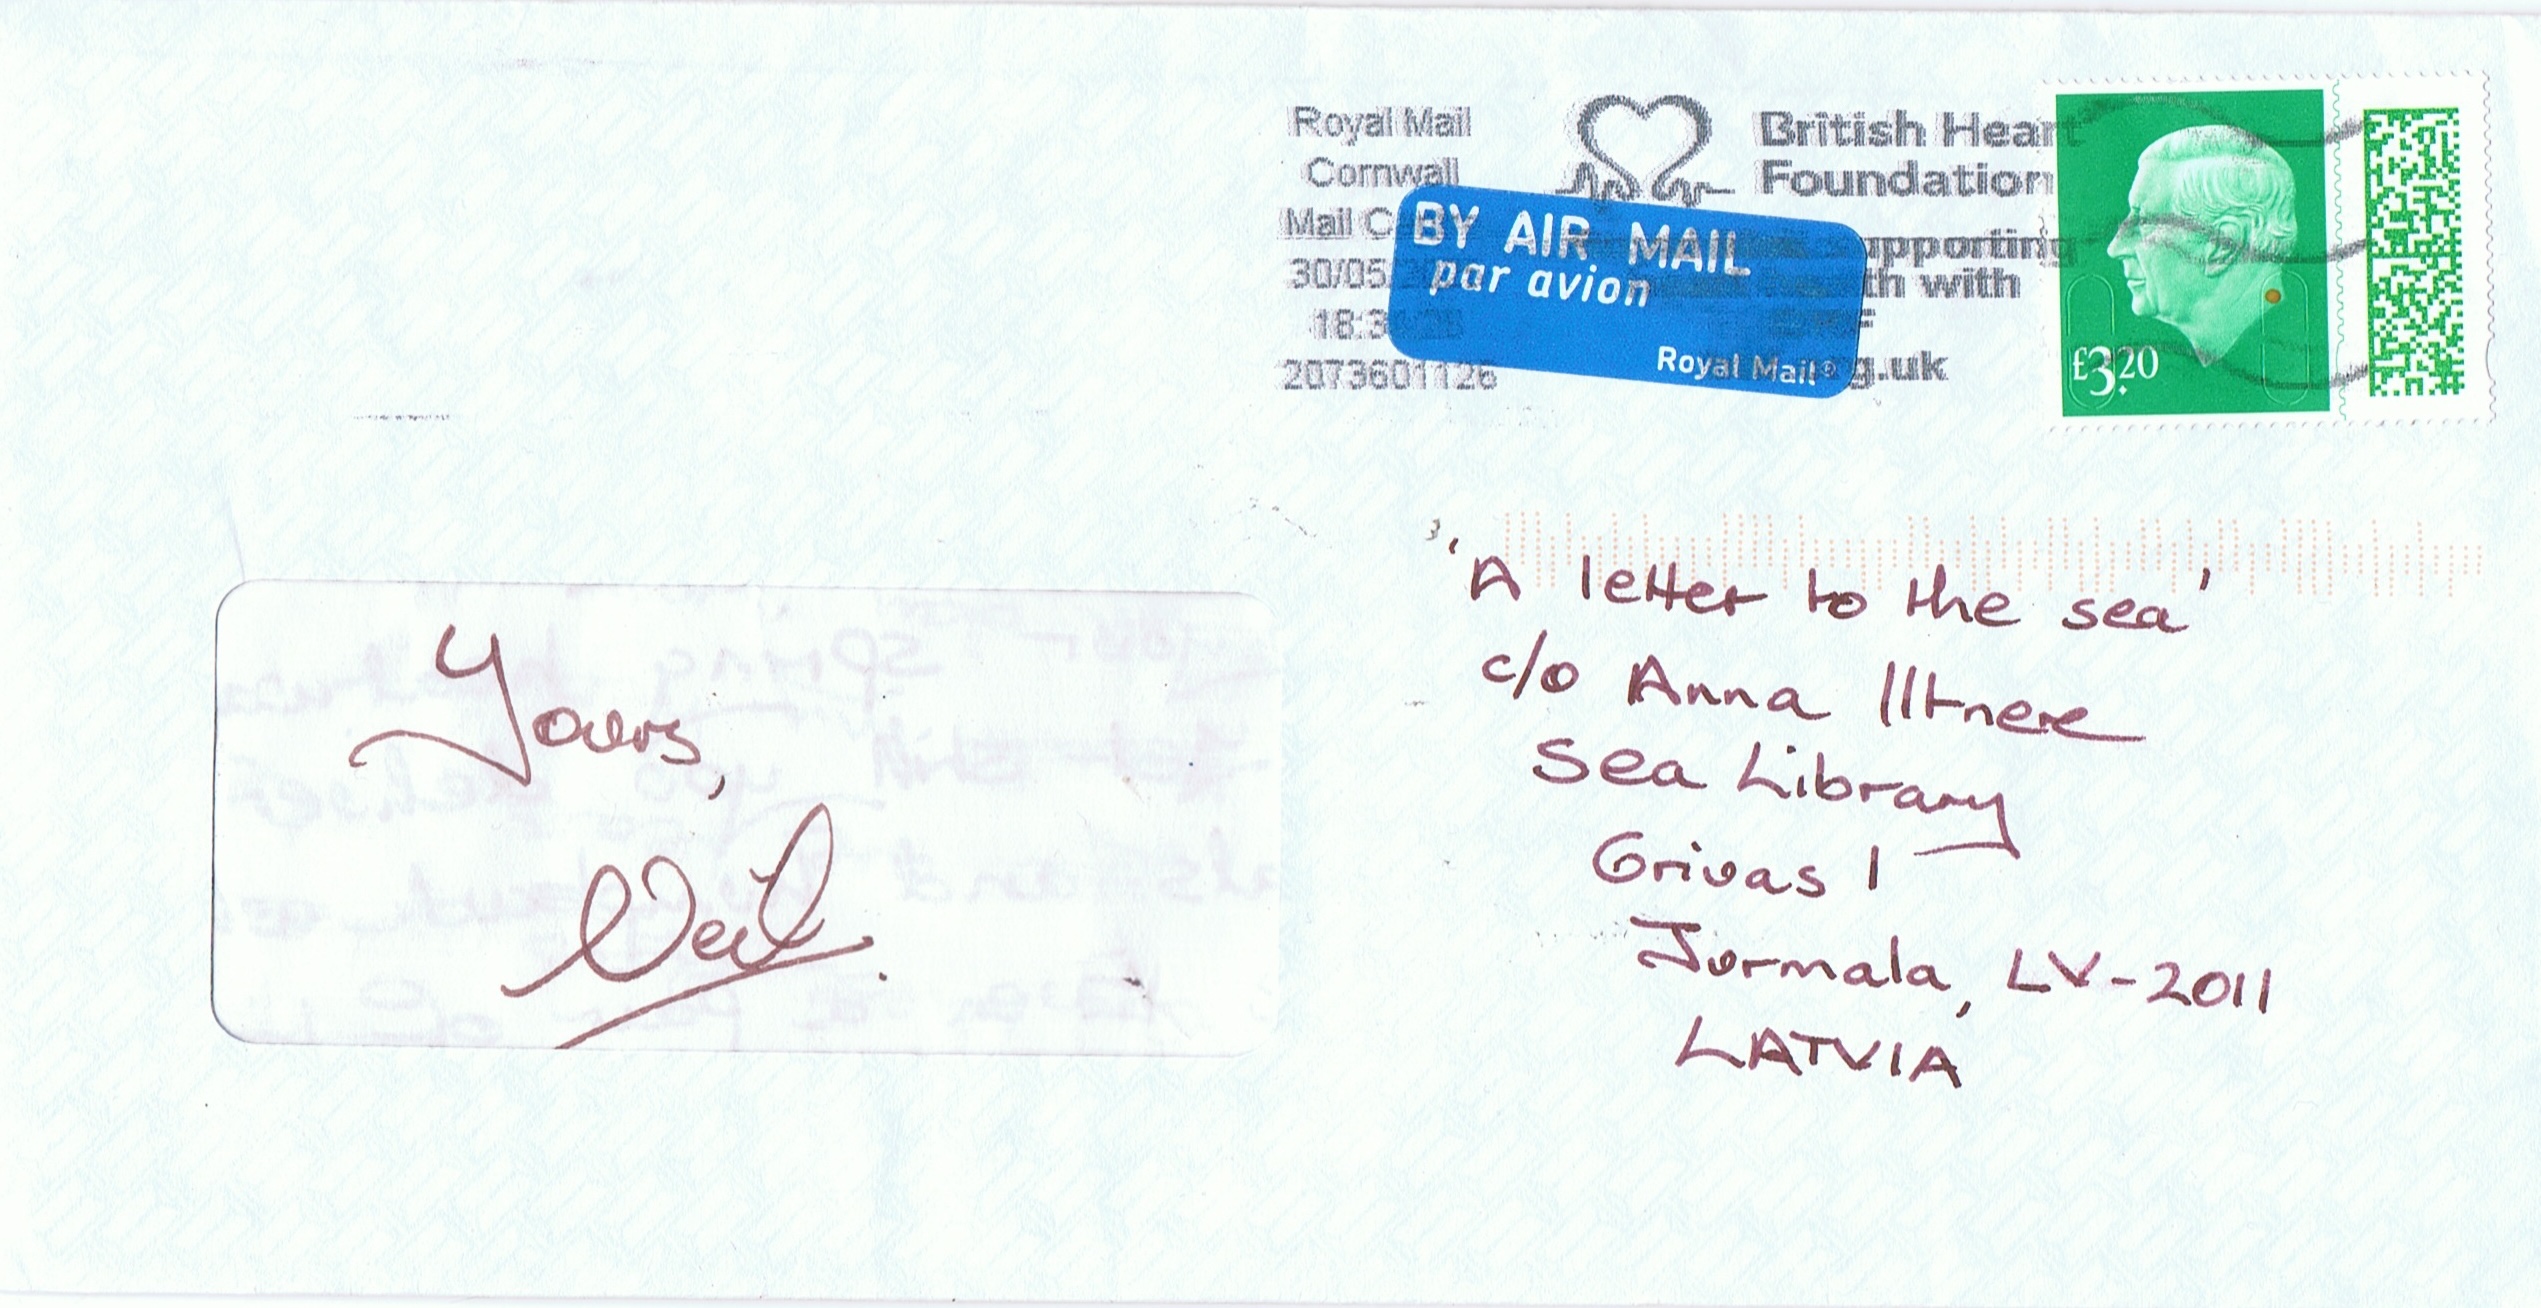 Royal Mail
Cornwall
Mail
30/05
18:3
2073601126
British Heart
Foundation
supporting
with
g.uk
BY AIR MAIL
par avion
Royal Mail®
£3.20
'A letter to the sea'
c/o Anna Iltnere
Sea Library
Grivas 1
Jurmala, LV-2011
LATVIA
Yours,
Neil.